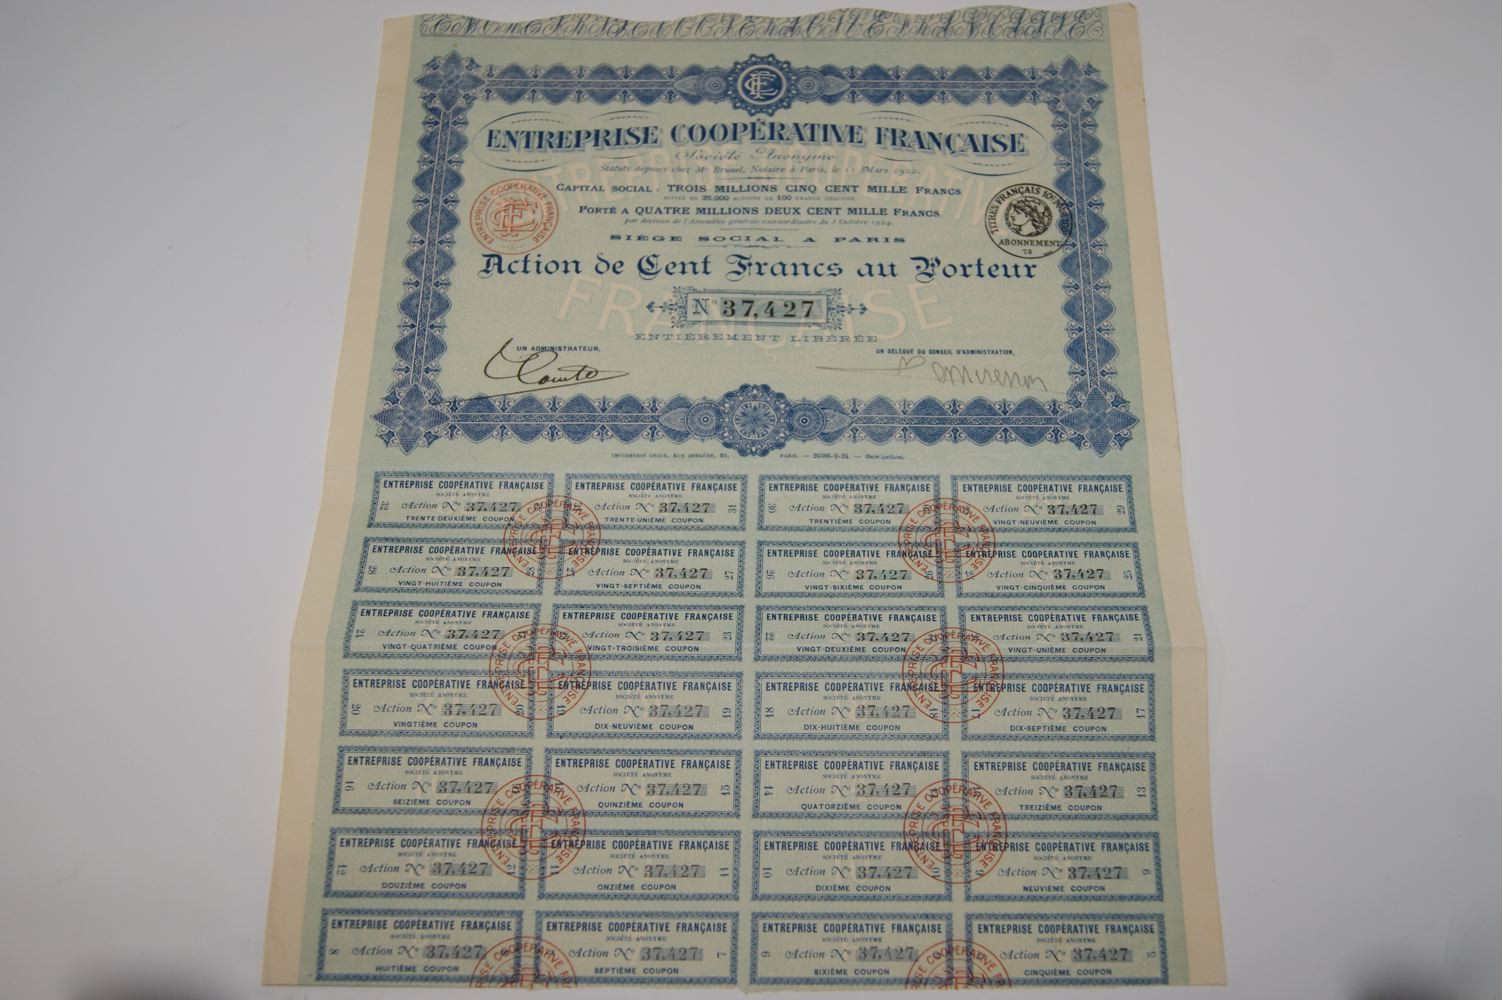 ENTREPRISE COOPÉRATIVE FRANÇAISE
Société Anonyme
Statuts déposés chez Me Brunel, Notaire à Paris, le 11 Mars 1922.
CAPITAL SOCIAL : TROIS MILLIONS CINQ CENT MILLE FRANCS
DIVISÉ EN 35.000 ACTIONS DE 100 FRANCS CHACUNE
PORTÉ A QUATRE MILLIONS DEUX CENT MILLE FRANCS
par décision de l'Assemblée générale extraordinaire du 3 Octobre 1924.
SIÈGE SOCIAL A PARIS
ENTREPRISE COOPÉRATIVE FRANÇAISE
TITRES FRANÇAIS
ABONNEMENT
Action de Cent Francs au Porteur
No 37,427
ENTIÈREMENT LIBÉRÉE
UN ADMINISTRATEUR,
UN DÉLÉGUÉ DU CONSEIL D'ADMINISTRATION,
IMPRIMERIE CHAIX, RUE BERGÈRE, 20, PARIS. — 20386-9-24.
ENTREPRISE COOPÉRATIVE FRANÇAISE ENTREPRISE COOPÉRATIVE FRANÇAISE ENTREPRISE COOPÉRATIVE FRANÇAISE ENTREPRISE COOPÉRATIVE FRANÇAISE
SOCIÉTÉ ANONYME SOCIÉTÉ ANONYME SOCIÉTÉ ANONYME SOCIÉTÉ ANONYME
32 Action No 37,427 Action No 37,427 31 30 Action No 37,427 Action No 37,427 29
TRENTE-DEUXIÈME COUPON TRENTE-UNIÈME COUPON TRENTIÈME COUPON VINGT-NEUVIÈME COUPON
ENTREPRISE COOPÉRATIVE FRANÇAISE ENTREPRISE COOPÉRATIVE FRANÇAISE ENTREPRISE COOPÉRATIVE FRANÇAISE ENTREPRISE COOPÉRATIVE FRANÇAISE
SOCIÉTÉ ANONYME SOCIÉTÉ ANONYME SOCIÉTÉ ANONYME SOCIÉTÉ ANONYME
28 Action No 37,427 28 27 Action No 37,427 27 26 Action No 37,427 26 25 Action No 37,427 25
VINGT-HUITIÈME COUPON VINGT-SEPTIÈME COUPON VINGT-SIXIÈME COUPON VINGT-CINQUIÈME COUPON
ENTREPRISE COOPÉRATIVE FRANÇAISE ENTREPRISE COOPÉRATIVE FRANÇAISE ENTREPRISE COOPÉRATIVE FRANÇAISE ENTREPRISE COOPÉRATIVE FRANÇAISE
SOCIÉTÉ ANONYME SOCIÉTÉ ANONYME SOCIÉTÉ ANONYME SOCIÉTÉ ANONYME
24 Action No 37,427 Action No 37,427 23 22 Action No 37,427 Action No 37,427 21
VINGT-QUATRIÈME COUPON VINGT-TROISIÈME COUPON VINGT-DEUXIÈME COUPON VINGT-UNIÈME COUPON
ENTREPRISE COOPÉRATIVE FRANÇAISE ENTREPRISE COOPÉRATIVE FRANÇAISE ENTREPRISE COOPÉRATIVE FRANÇAISE ENTREPRISE COOPÉRATIVE FRANÇAISE
SOCIÉTÉ ANONYME SOCIÉTÉ ANONYME SOCIÉTÉ ANONYME SOCIÉTÉ ANONYME
20 Action No 37,427 20 19 Action No 37,427 19 18 Action No 37,427 18 17 Action No 37,427 17
VINGTIÈME COUPON DIX-NEUVIÈME COUPON DIX-HUITIÈME COUPON DIX-SEPTIÈME COUPON
ENTREPRISE COOPÉRATIVE FRANÇAISE ENTREPRISE COOPÉRATIVE FRANÇAISE ENTREPRISE COOPÉRATIVE FRANÇAISE ENTREPRISE COOPÉRATIVE FRANÇAISE
SOCIÉTÉ ANONYME SOCIÉTÉ ANONYME SOCIÉTÉ ANONYME SOCIÉTÉ ANONYME
16 Action No 37,427 Action No 37,427 15 14 Action No 37,427 Action No 37,427 13
SEIZIÈME COUPON QUINZIÈME COUPON QUATORZIÈME COUPON TREIZIÈME COUPON
ENTREPRISE COOPÉRATIVE FRANÇAISE ENTREPRISE COOPÉRATIVE FRANÇAISE ENTREPRISE COOPÉRATIVE FRANÇAISE ENTREPRISE COOPÉRATIVE FRANÇAISE
SOCIÉTÉ ANONYME SOCIÉTÉ ANONYME SOCIÉTÉ ANONYME SOCIÉTÉ ANONYME
12 Action No 37,427 12 11 Action No 37,427 11 10 Action No 37,427 10 9 Action No 37,427 9
DOUZIÈME COUPON ONZIÈME COUPON DIXIÈME COUPON NEUVIÈME COUPON
ENTREPRISE COOPÉRATIVE FRANÇAISE ENTREPRISE COOPÉRATIVE FRANÇAISE ENTREPRISE COOPÉRATIVE FRANÇAISE ENTREPRISE COOPÉRATIVE FRANÇAISE
SOCIÉTÉ ANONYME SOCIÉTÉ ANONYME SOCIÉTÉ ANONYME SOCIÉTÉ ANONYME
8 Action No 37,427 Action No 37,427 7 6 Action No 37,427 Action No 37,427 5
HUITIÈME COUPON SEPTIÈME COUPON SIXIÈME COUPON CINQUIÈME COUPON